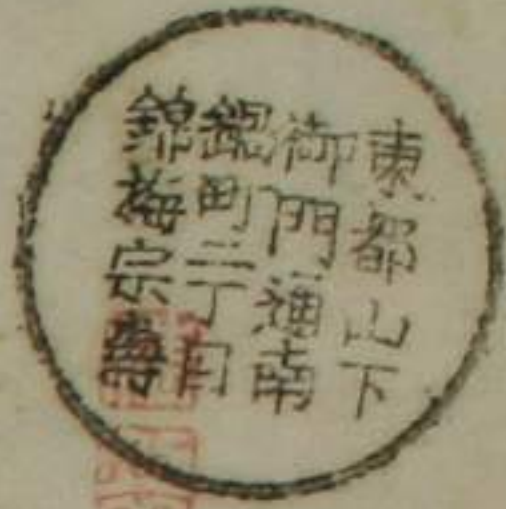 東都山下
御門通南
鍋町二丁目
錦梅宗壽